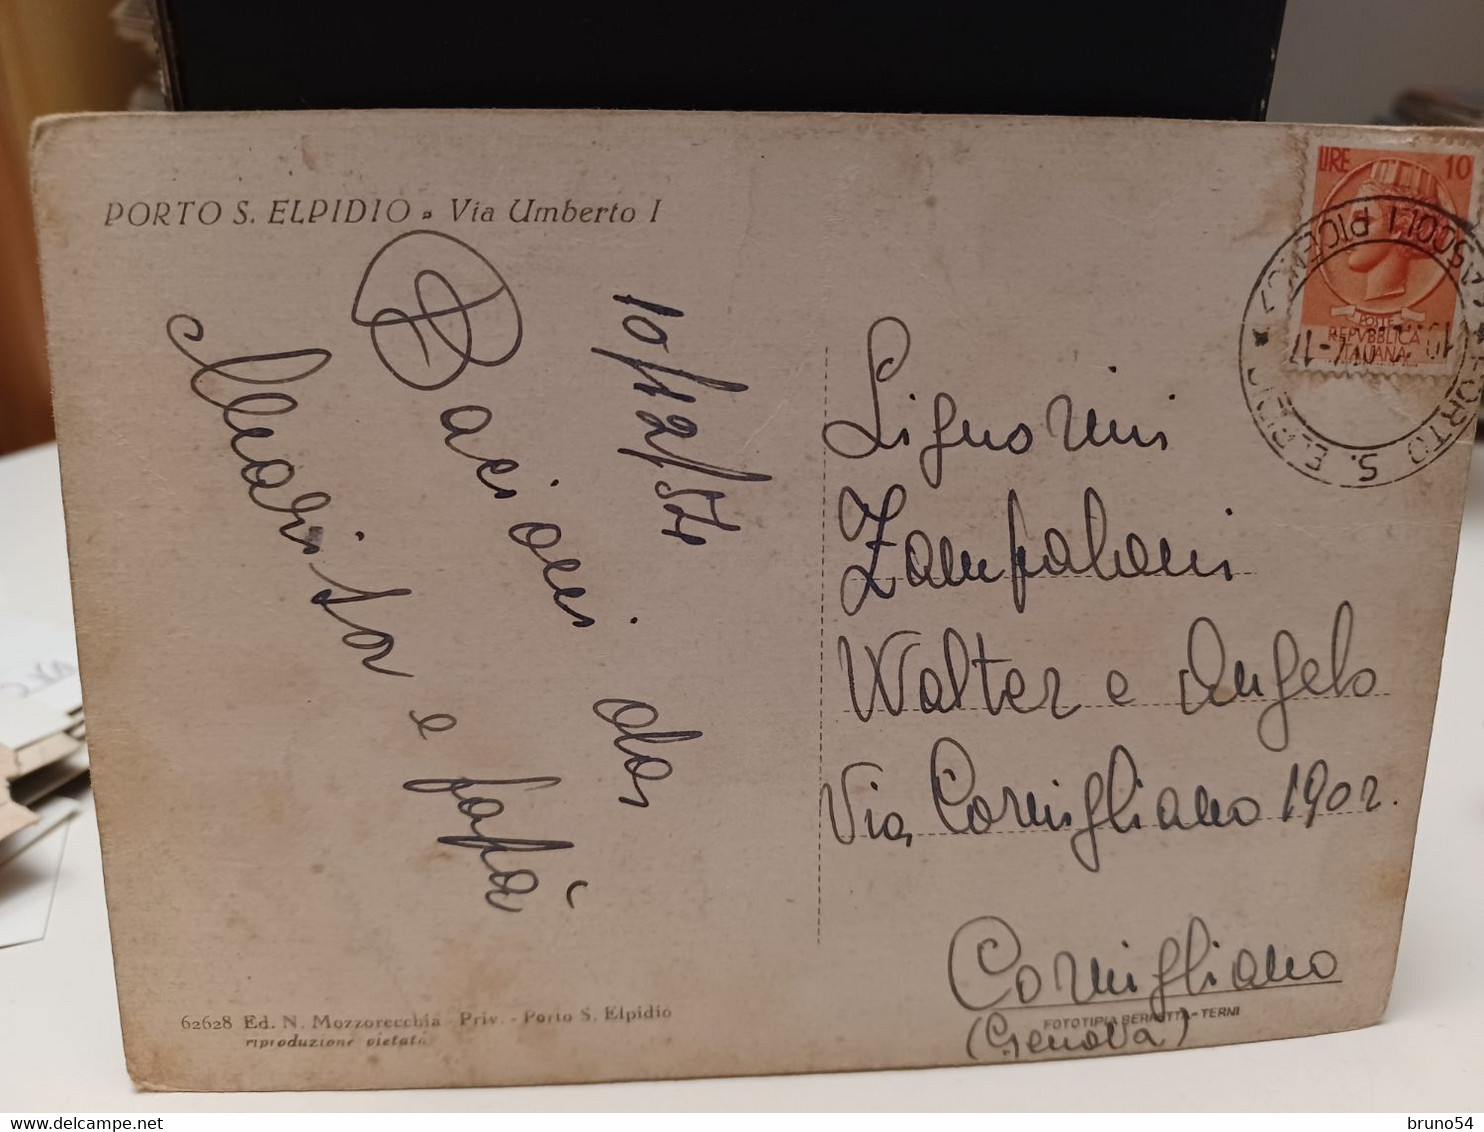 PORTO S. ELPIDIO - Via Umberto I
10/12/54
Bacioni da
Marisa e papà
LIRE 10
POSTE
REPVBBLICA
ITALIANA
PORTO S. ELPIDIO * ASCOLI PICENO *
Signorini
Zampaloni
Walter e Angelo
Via Cornigliano 190r.
Cornigliano
(Genova)
62628 Ed. N. Mozzorecchia - Priv. - Porto S. Elpidio
riproduzione vietata
FOTOTIPIA BERRETTA - TERNI
bruno54